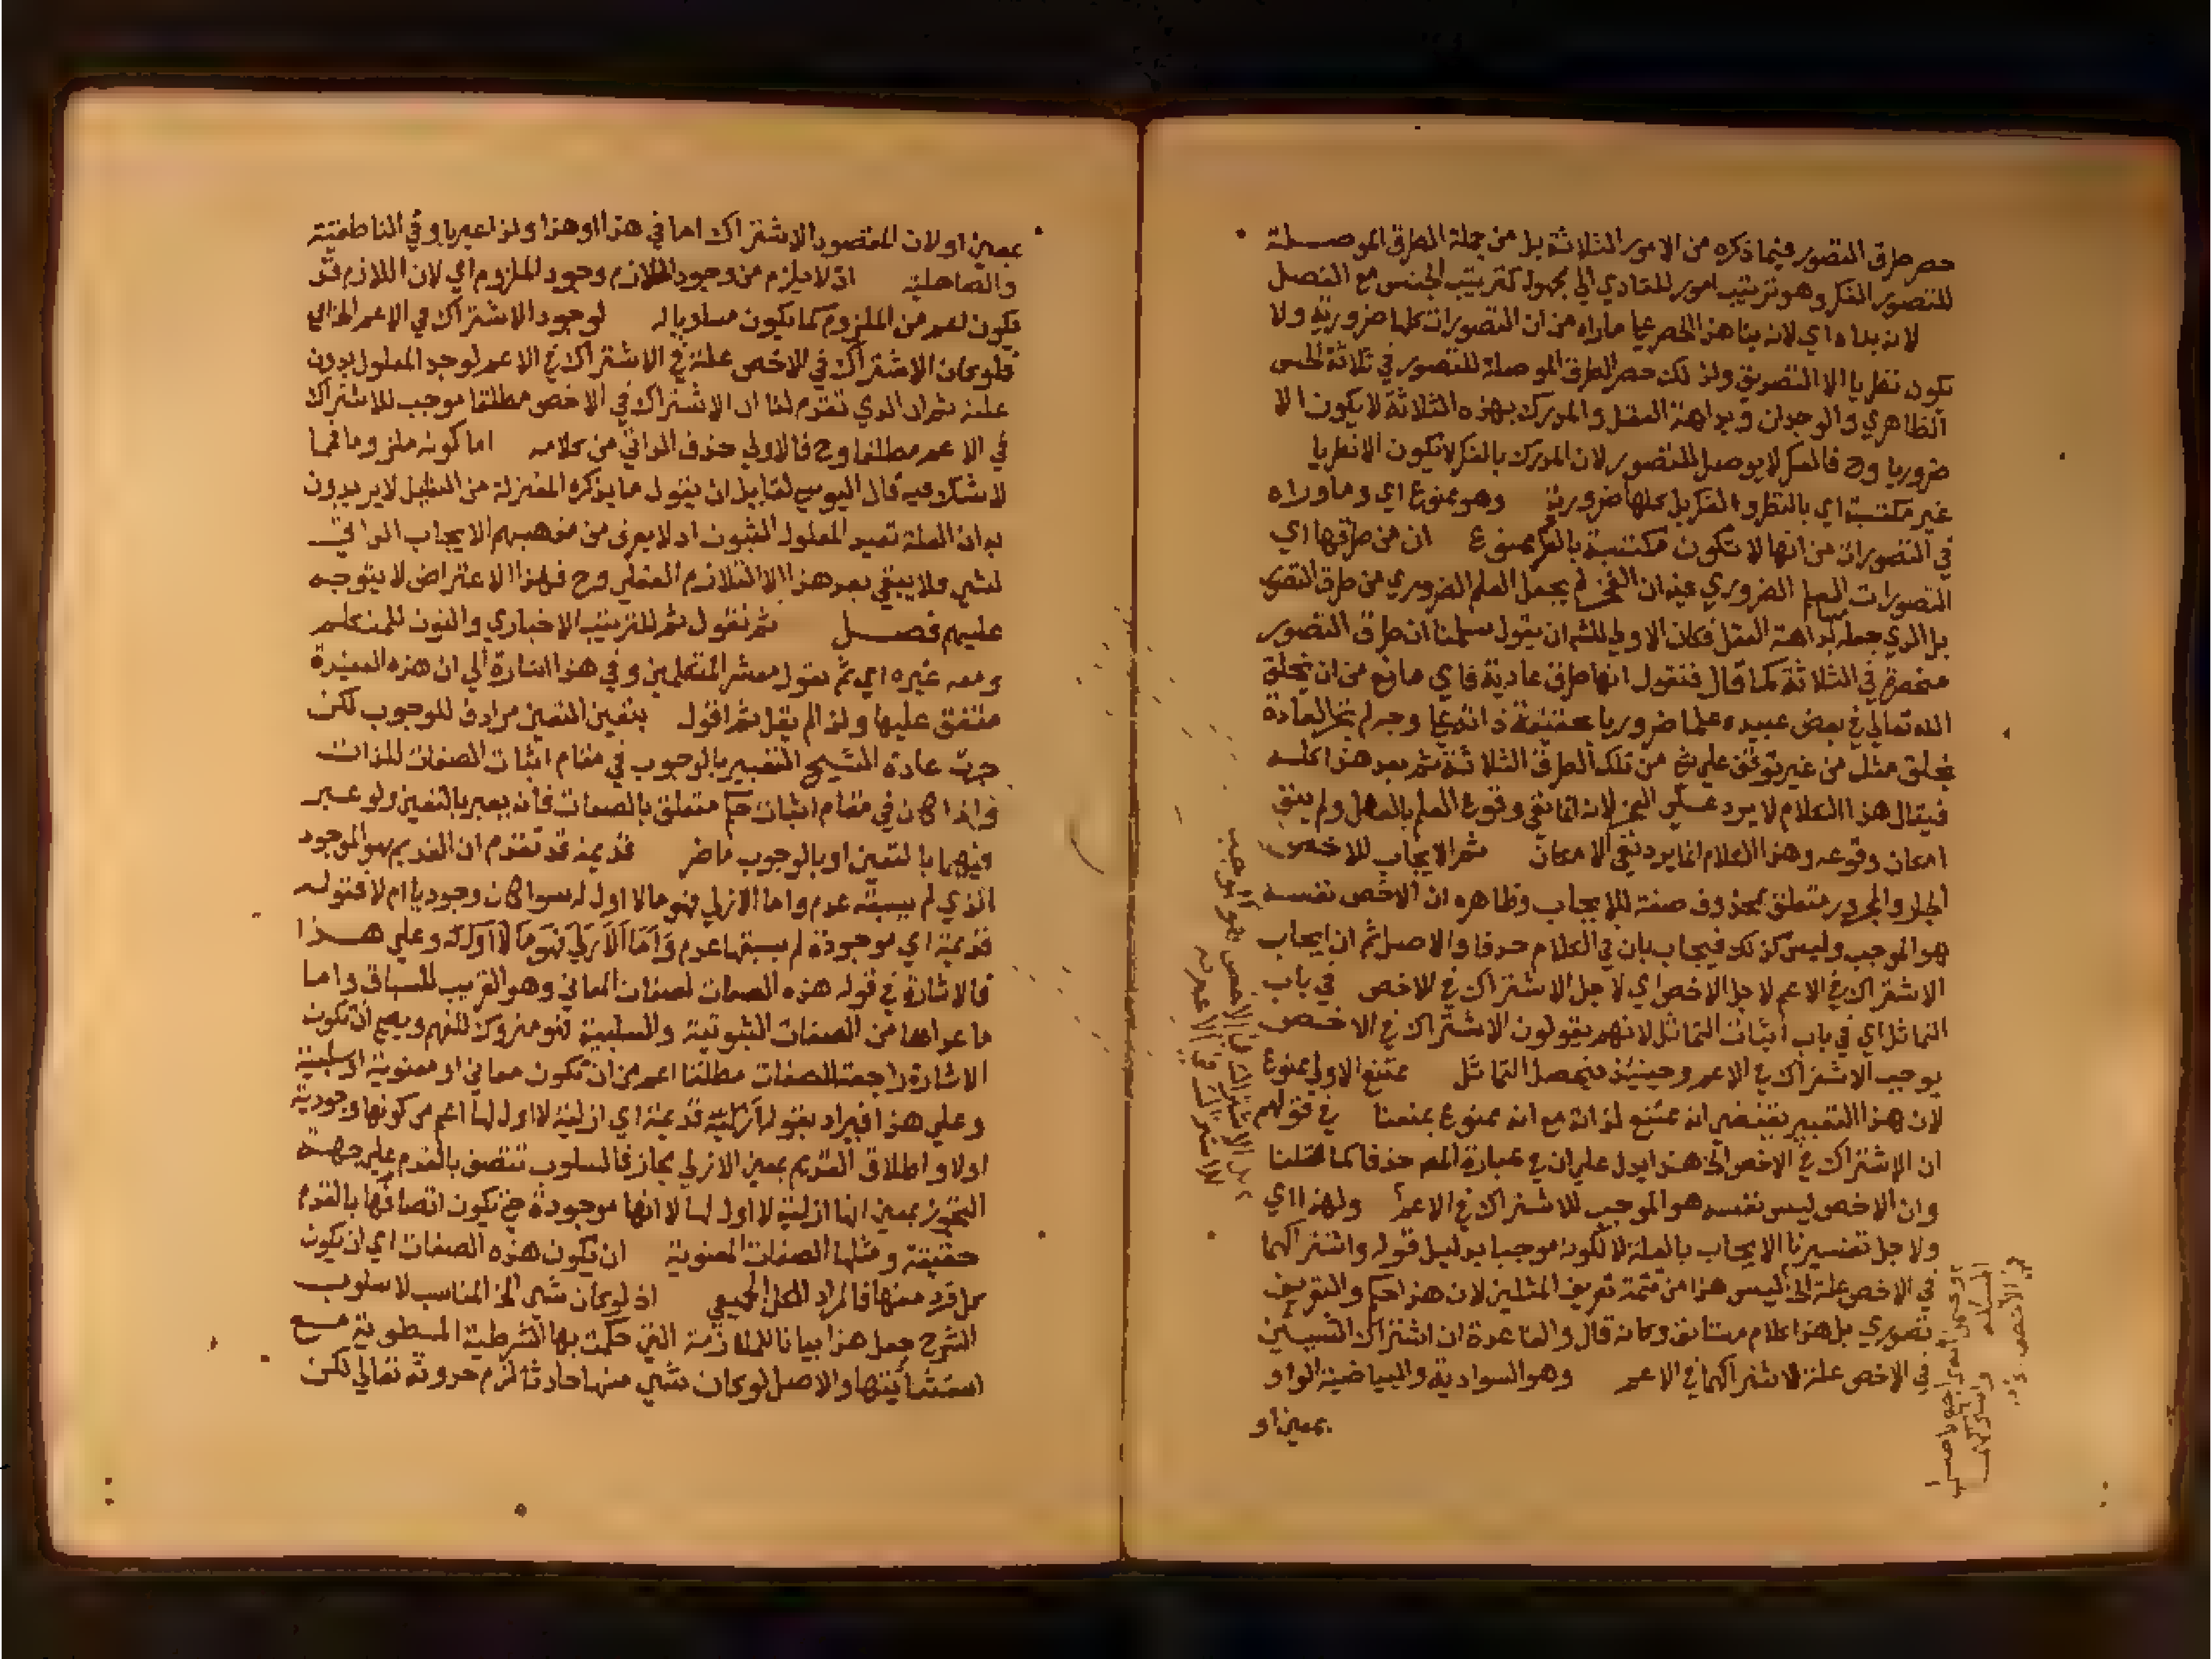 حصر طرق التصور فيما ذكره من الامور الثلاثة بل من جملة الطرق الموصلة
للتصور الفكر وهو ترتيب امور للتادي الي مجهول كترتيب الجنس مع الفصل
لانه بناه اي لانه بنا هذا الحصر علي ماراه من ان التصورات كلها ضرورية ولا
يكون نظريا الا التصديق ولذلك حصر الطرق الموصلة للتصور في ثلاثة الحس
الظاهري والوجدان وبداهة العقل والمدرك بهذه الثلاثة لا يكون الا
ضروريا وح فالفكر لا يوصل للتصور لان المدرك بالفكر لا يكون الا نظريا
غير مكتسبة اي بالنظر والفكر بل كلها ضرورية وهو ممنوع اي وما وراه
في التصورات من انها لا تكون مكتسبة بالفكر ممنوع ان من طرقها اي
التصورات العلم الضروري فيه ان الفخر لم يجعل العلم الضروري من طرق التصور
بل الذي جعله بداهة العقل فكان الاولي للش ان يقول سلمنا ان طرق التصور
منحصرة في الثلاثة كما قال فنقول انها طرق عادية فاي مانع من ان يخلق
الله تعالي في بعض عبيده علما ضروريا بحقيقة ذاته علي وجه لم تجر العادة
بخلق مثله من غير توقف علي شي من تلك الطرق الثلاثة ثم بعد هذا كله
فيقال هذا الكلام لا يرد علي الفخر لانه انما نفي وقوع العلم بالفعل ولم ينف
امكان وقوعه وهذا الكلام انما يرد نفي الامكان ثم الايجاب للاخص
الجار والمجرور متعلق بمحذوف صفة للايجاب وظاهره ان الاخص نفسه
هو الموجب وليس كذلك فيجاب بان في الكلام حذفا والاصل ثم ان ايجاب
الاشتراك في الاعم لاجل الاخص اي لاجل الاشتراك في الاخص في باب
التماثل اي في باب اثبات التماثل لانهم يقولون الاشتراك في الاخص
يوجب الاشتراك في الاعم وحينئذ فيحصل التماثل ممتنع الاولي ممنوع
لان هذا التعبير يقتضي انه ممتنع لذاته مع انه ممنوع بمنعنا في قولهم
ان الاشتراك في الاخص الخ هذا يدل علي ان في عبارة المص حذفا كما قلنا
وان الاخص ليس نفسه هو الموجب للاشتراك في الاعم ولهذا اي
ولاجل تفسيرنا الايجاب بالعلة لا لكونه موجبا بدليل قوله واشتراكهما
في الاخص علة الخ ليس هذا من تتمة تعريف المثلين لان هذا حكم والتعريف
تصوري بل هذا كلام مستانف وكانه قال والقاعدة ان اشتراك الشيئين
في الاخص علة لاشتراكهما في الاعم وهو السوادية والبياضية الواو
بمعني او
بمعني او لان المقصود الاشتراك اما في هذا او هذا ولذا عبر باو في الناطقية
والصاهلية اذ لا يلزم من وجود اللازم وجود الملزوم اي لان اللازم قد
يكون اعم من الملزوم كما يكون مساويا له لوجود الاشتراك في الاعم الخ اي
فلو كان الاشتراك في الاخص علة في الاشتراك في الاعم لوجد المعلول بدون
علته ثم ان الذي تقدم لنا ان الاشتراك في الاخص مطلقا موجب للاشتراك
في الاعم مطلقا وح فالاولي حذف الذاتي من كلامه اما كونه ملزوما فما
لا شك فيه قال اليوسي لقايل ان يقول ما يذكره المعتزلة من التعليل لا يريدون
به ان العلة تفيد المعلول الثبوت اذ لا يعرف من مذهبهم الايجاب الذاتي
لشي ولا يبقي بعد هذا الا التلازم العقلي وح فهذا الاعتراض لا يتوجه
عليهم فصل ثم نقول ثم للترتيب الاخباري والنون للمتكلم
ومعه غيره اي ثم نقول معشر المتكلمين وفي هذا اشارة الي ان هذه العقيدة
متفق عليها ولذا لم يقل ثم اقول يتعين التعين مرادف للوجوب لكن
جرت عادة الشيخ التعبير بالوجوب في مقام اثبات الصفات للذات
واذا كان في مقام اثبات حكم متعلق بالصفات فانه يعبر بالتعين ولو عبر
فيهما بالتعين او بالوجوب ما ضر قديمة قد تقدم ان القديم هو الموجود
الذي لم يسبقه عدم واما الازلي فهو مالا اول له سوا كان وجوديا ام لا فقوله
قديمة اي موجودة لم يسبقها عدم واما الازلي فهو ما لا اول له وعلي هذا
فالاشارة في قوله هذه الصفات لصفات المعاني وهو القريب للسياق واما
ما عداها من الصفات الثبوتية والسلبية فهو متروك للفهم ويصح ان تكون
الاشارة راجعة للصفات مطلقا اعم من ان تكون معاني او معنوية او سلبية
وعلي هذا فيراد بقوله ازلية قديمة اي ازلية لا اول لها اعم من كونها وجودية
اولا واطلاق القديم بمعني الازلي مجاز فالسلوب تتصف بالقدم علي جهة
التجوز بمعني انها ازلية لا اول لها لا انها موجودة حتي يكون اتصافها بالقدم
حقيقة ومثلها الصفات المعنوية ان تكون هذه الصفات اي ان تكون
كل فرد منها فالمراد الكل الجميعي اذ لو كان شي الخ المناسب لاسلوب
الشرح جعل هذا بيانا للملازمة التي حكمت بها الشرطية المطوية مع
استثنائيتها والاصل لو كان شي منها حادثا لزم حدوثه تعالي لكن